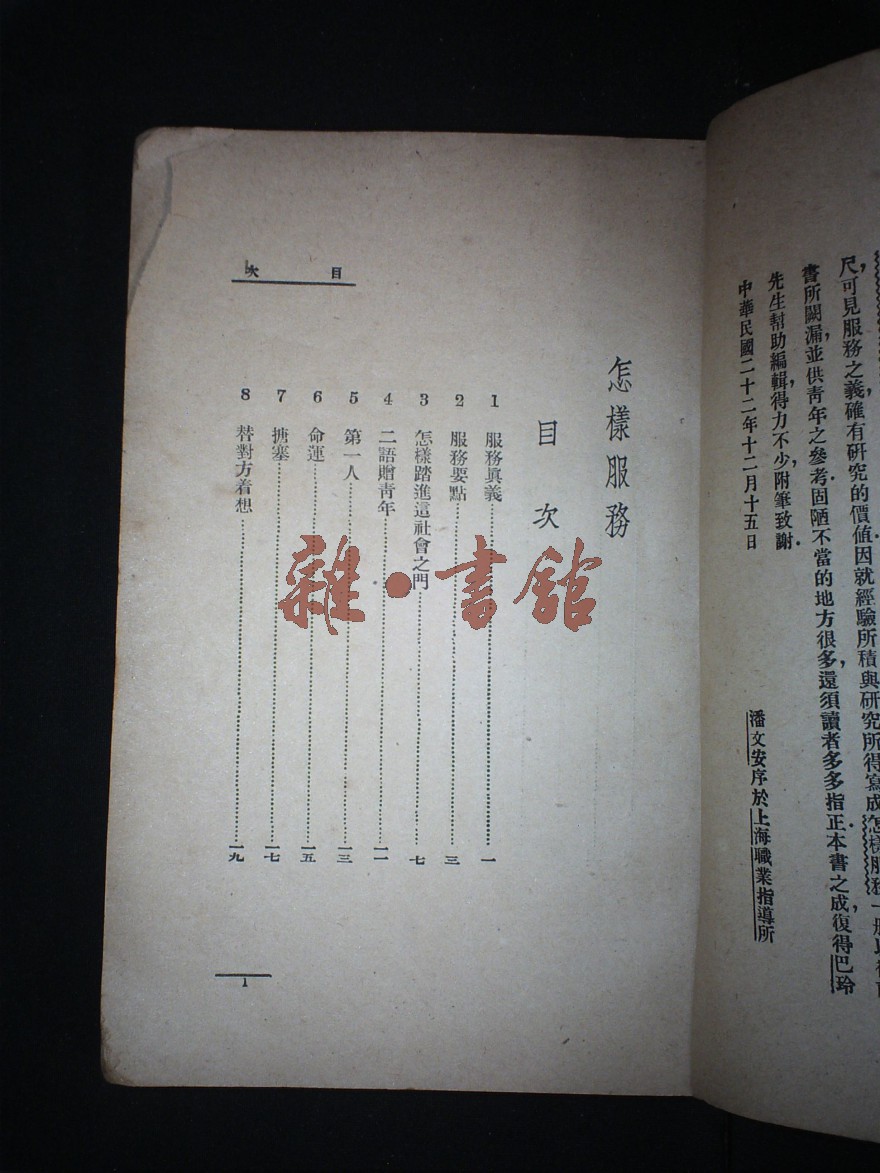 尺,可見服務之義,確有研究的價值.因就經驗所積與研究所得,寫成怎樣服務一
書所闕漏,並供靑年之參考.固陋不當的地方很多,還須讀者多多指正.本書之成,復得巴玲
先生幫助編輯,得力不少,附筆致謝.
中華民國二十二年十二月十五日
潘文安序於上海職業指導所
目次
怎樣服務
目次
1 服務眞義……一
2 服務要點……三
3 怎樣踏進這社會之門……七
4 二語贈靑年……一一
5 第一人……一三
6 命運……一五
7 搪塞……一七
8 替對方着想……一九
1
雜·書舘